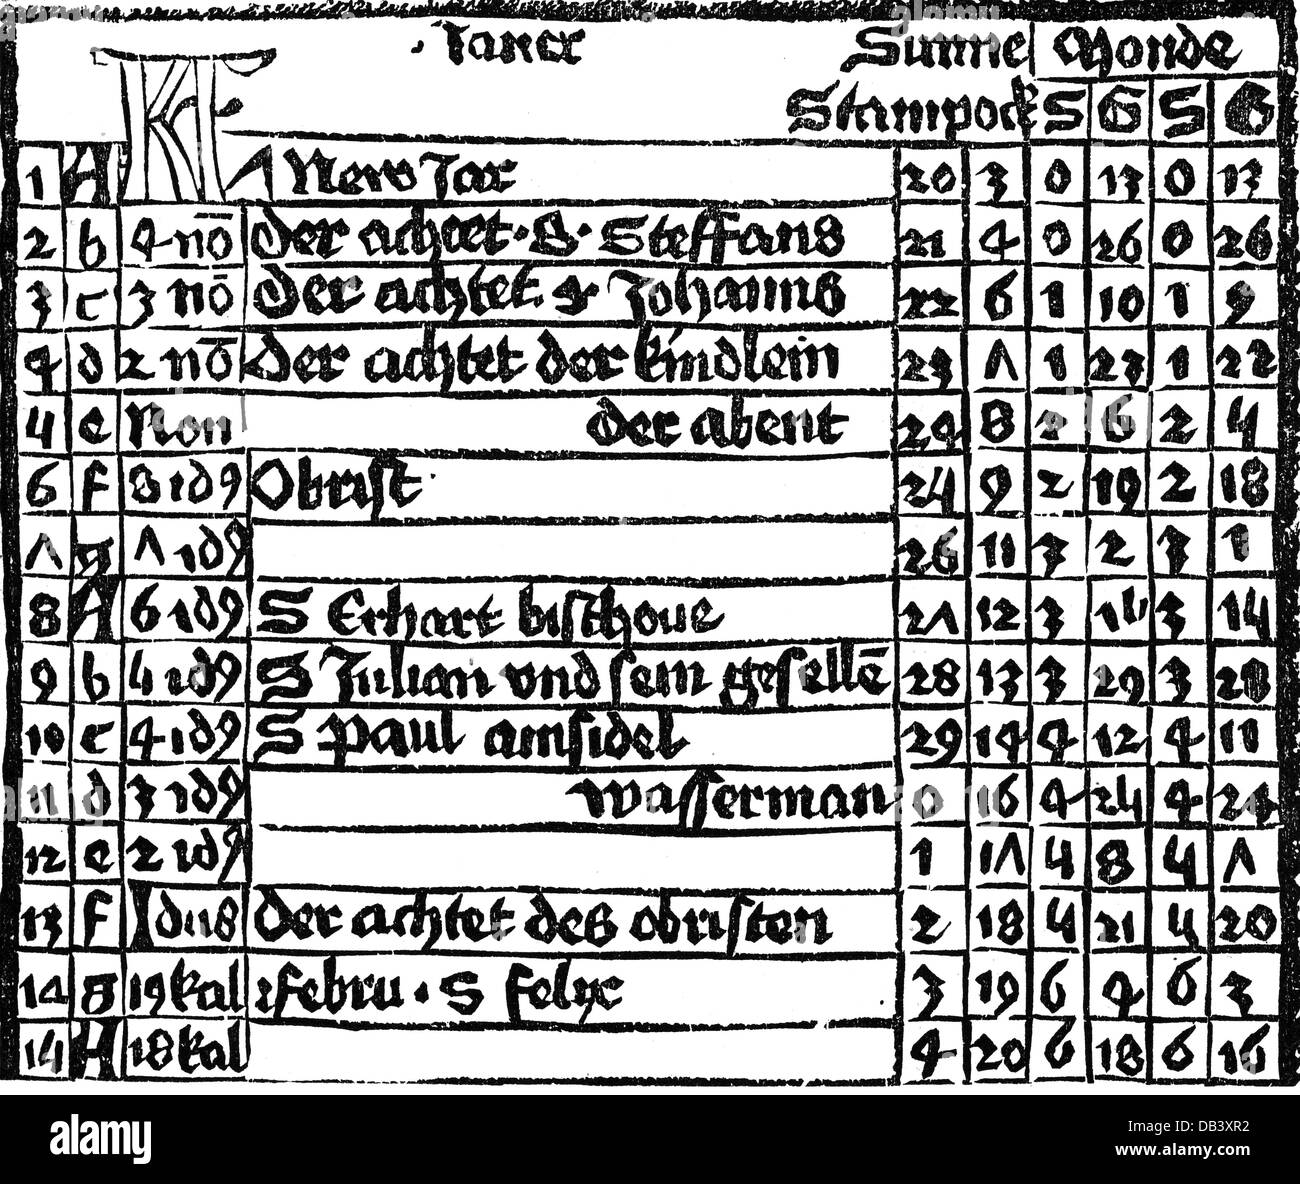 Janer Sunne Monde
KL Stainpock S G S G
1 A New Jar 20 3 0 13 0 13
2 b 4 nō Der achtet · S · Steffans 21 4 0 26 0 26
3 c 3 nō Der achtet S Johanns 22 6 1 10 1 9
4 d 2 nō Der achtet der kindlein 23 7 1 23 1 22
5 e Non der abent 24 8 2 6 2 5
6 f 8 idꝰ Obrist · 25 9 2 19 2 18
7 g 7 idꝰ 26 11 3 2 3 1
8 A 6 idꝰ S Erhart bischoue 27 12 3 16 3 15
9 b 5 idꝰ S Julian vnd sein gesellē 28 13 3 29 3 28
10 c 4 idꝰ S Paul ainsidel 29 14 4 12 4 11
11 d 3 idꝰ wasserman 0 16 4 25 4 24
12 e 2 idꝰ 1 17 5 8 5 7
13 f Idus Der achtet des obristen 2 18 5 21 5 20
14 g 19 kal febru · S felix 3 19 6 4 6 3
15 A 18 kal 4 20 6 18 6 16
alamy
Image ID: DB3XR2
www.alamy.com